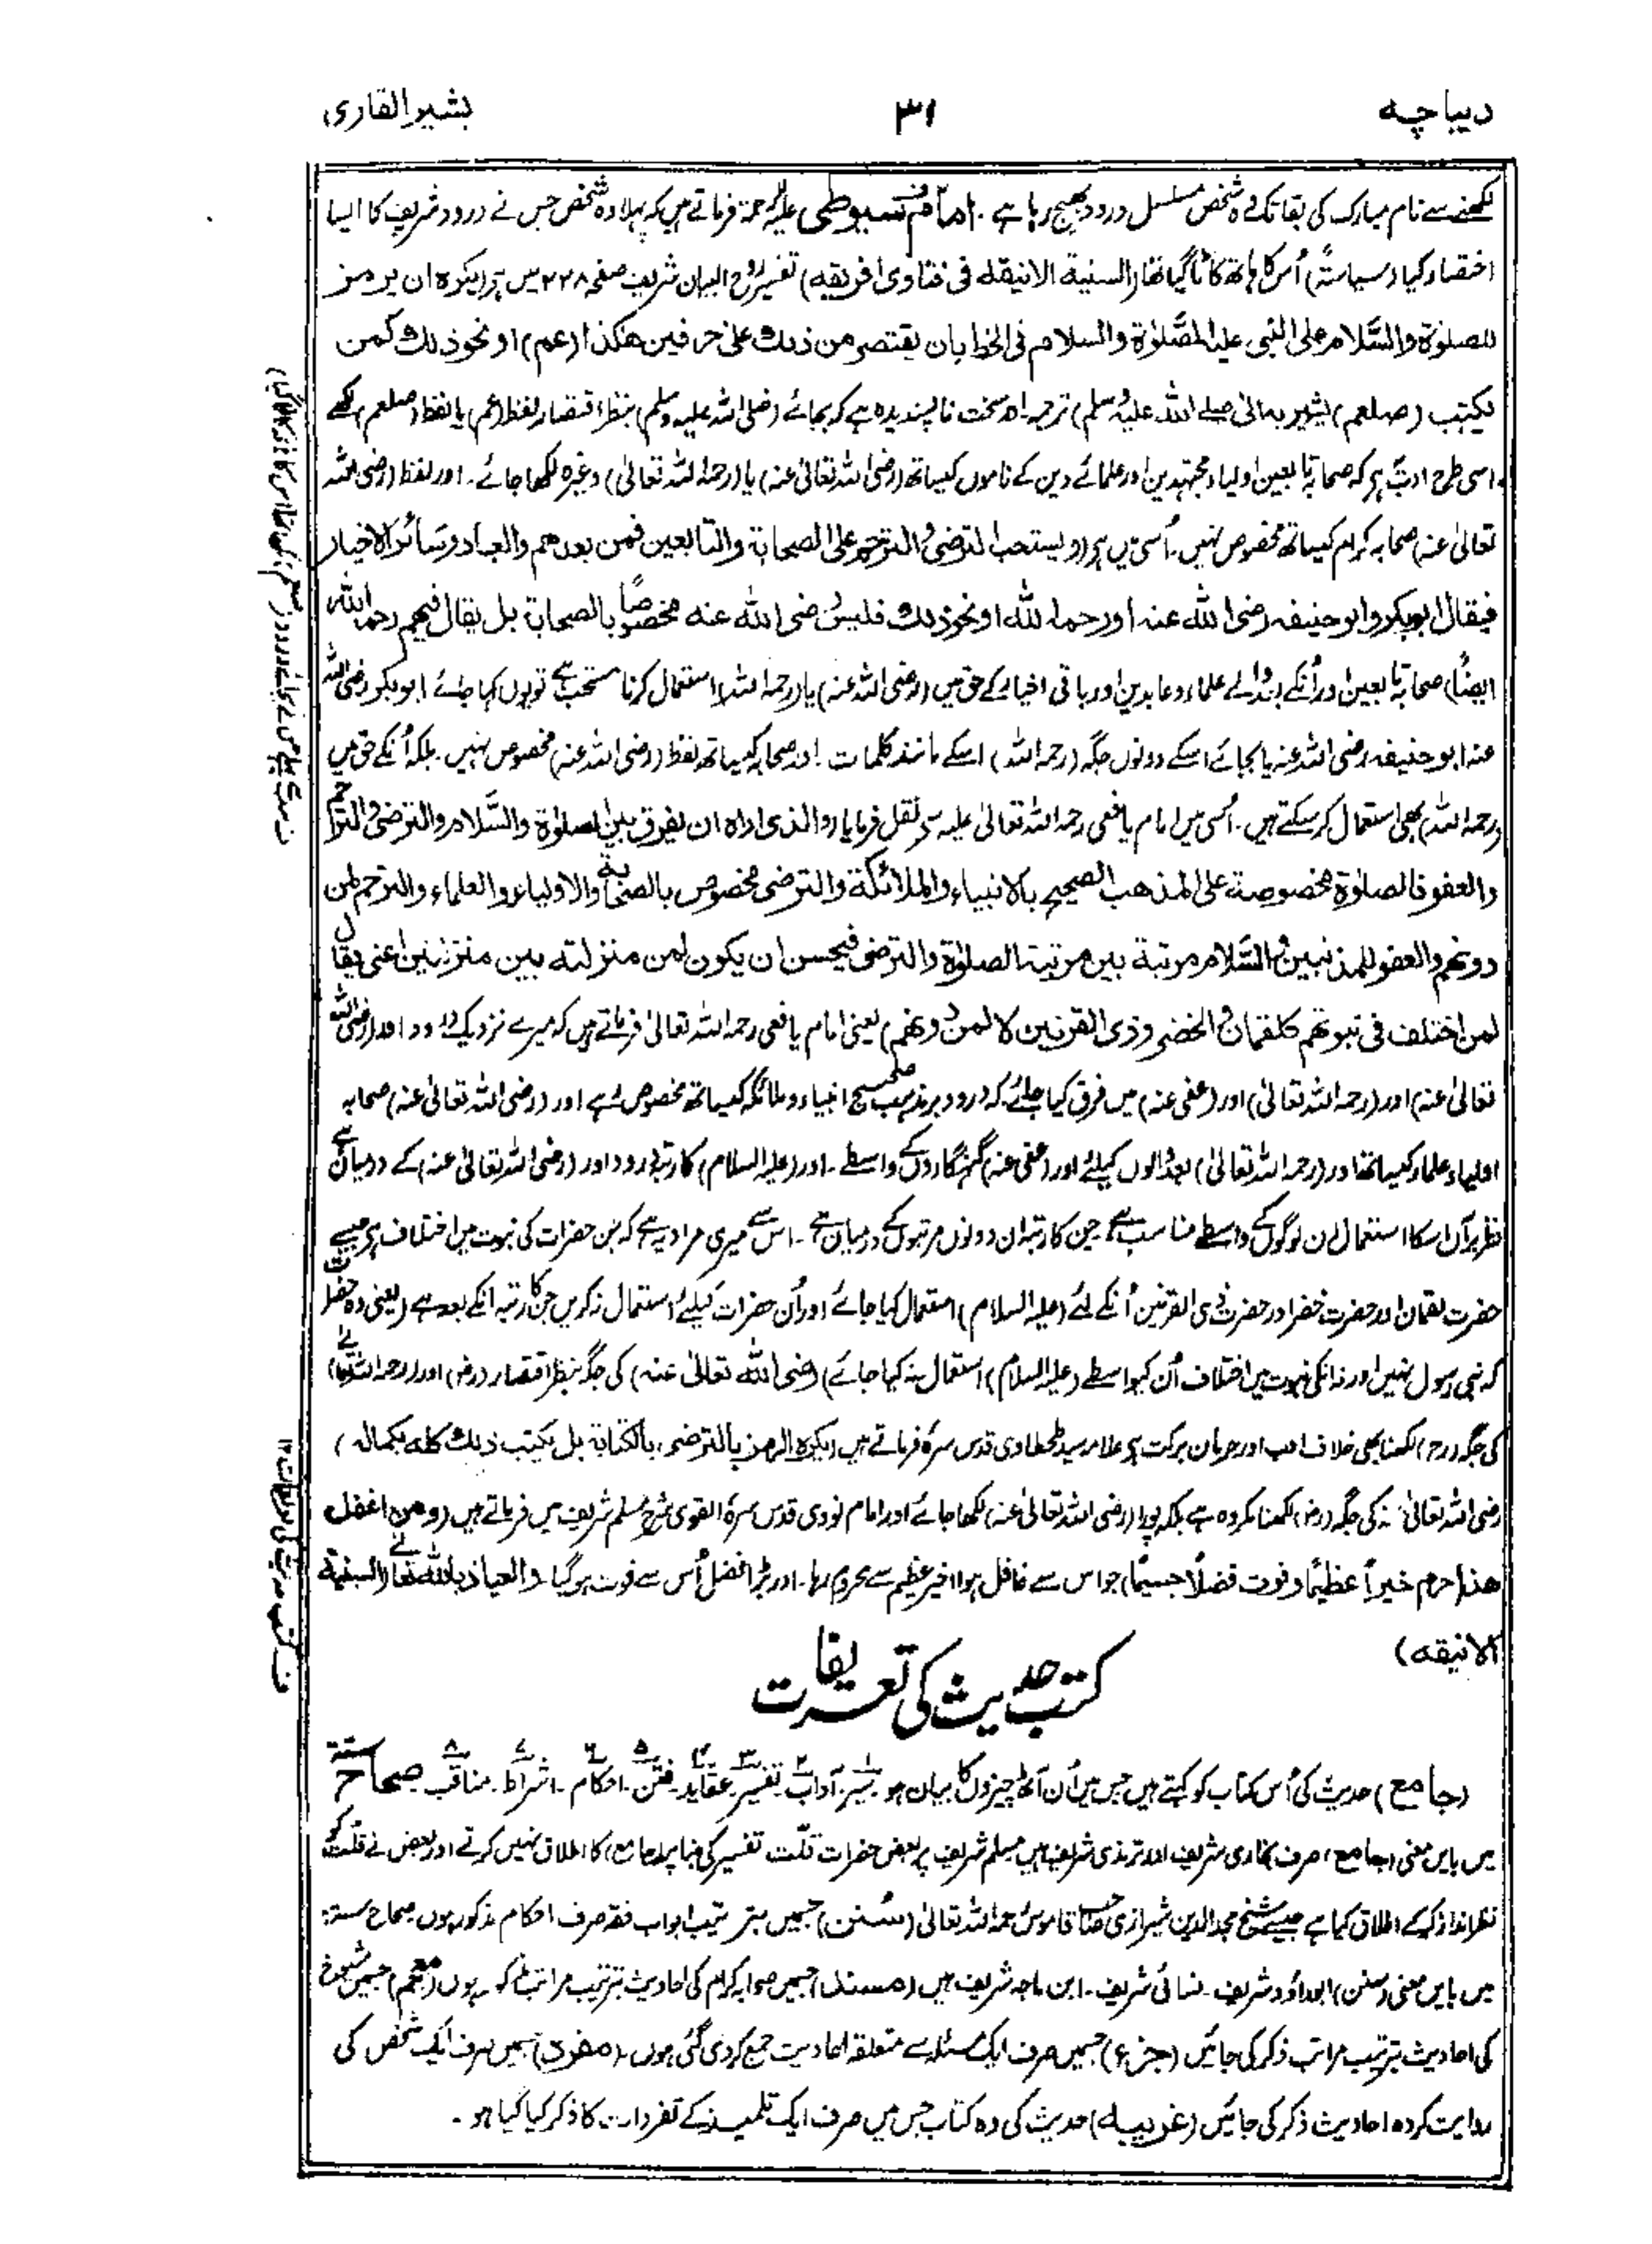 دیباچہ
۳۱
بشیر القاری
لکھنے سے نام مبارک کی بقا تک وہ شخص مسلسل درود بھیج رہا ہے۔ امام سیوطی علیہ الرحمۃ فرماتے ہیں کہ پہلا وہ شخص جس نے درود شریف کا ایسا
اختصار کیا (سیاستہً) اُس کا ہاتھ کاٹا گیا تھا (السنیۃ الانیقہ فی فتاوی افریقہ) تفسیر روح البیان شریف صفحہ ۲۲۸ میں ہے (یکرہ ان یرمز
للصلوٰۃ والسَّلام علی النبی علیہ الصَّلوٰۃ والسلام فی الخط بان یقتصر من ذلک علی حرفین ھکذا (عم) او نحو ذلک کمن
یکتب (صلعم) یشیر بہ الی صلے اللہ علیہ وسلم) ترجمہ اور سخت ناپسندیدہ ہے کہ بجائے (صلی اللہ علیہ وسلم) بنظر اقتصار لفظ (عم) یا لفظ (صلعم) لکھے
اسی طرح ادب یہ ہے کہ صحابہ تابعین اولیاء مجتہدین اور علمائے دین کے ناموں کیساتھ (رضی اللہ تعالیٰ عنہ) یا (رحمہ اللہ تعالیٰ) وغیرہ لکھا جائے۔ اور لفظ (رضی اللہ
تعالیٰ عنہ) صحابہ کرام کیساتھ مخصوص نہیں۔ اُسی میں ہے (ویستحب الترضی والترحم علی الصحابۃ والتابعین فمن بعدھم والعباد وسائر الاخیار
فیقال ابوبکر وابو حنیفہ رضی اللہ عنہ او رحمہ اللہ او نحو ذلک فلیس رضی اللہ عنہ مخصوصًا بالصحابۃ بل یقال فیھم رحمہ اللہ
ایضًا) صحابہ تابعین اور اُنکے بعد والے علماء و عابدین اور باقی اخیار کے حق میں (رضی اللہ عنہ) یا (رحمہ اللہ) استعمال کرنا مستحب ہے تو یوں کہا جائے ابوبکر رضی اللہ
عنہ ابو حنیفہ رضی اللہ عنہ یا بجائے اسکے دونوں جگہ (رحمہ اللہ) اسکے مانند کلمات اور صحابہ کیساتھ لفظ (رضی اللہ عنہ) مخصوص نہیں۔ بلکہ اُنکے حق میں
(رحمہ اللہ) بھی استعمال کر سکتے ہیں۔ اُسی میں امام یافعی رحمہ اللہ تعالیٰ علیہ سے نقل فرمایا (والذی اراہ ان یفرق بین الصلوٰۃ والسَّلام والترضی والترحم
والعفو فالصلوٰۃ مخصوصۃ علی المذھب الصحیح بالانبیاء والملائکۃ والترضی مخصوص بالصحابۃ والاولیاء والعلماء والترحم لمن
دونھم والعفو للمذنبین والسَّلام مرتبۃ بین مرتبۃ الصلوٰۃ والترضی فیحسن ان یکون لمن منزلتہ بین منزلتین اعنی یقال
لمن اختلف فی نبوتھم کلقمان والخضر وذی القرنین لا لمن دونھم) یعنی امام یافعی رحمہ اللہ تعالیٰ فرماتے ہیں کہ میرے نزدیک درود اور (رضی اللہ
تعالیٰ عنہ) اور (رحمہ اللہ تعالیٰ) اور (عفی عنہ) میں فرق کیا جائے کہ درود بر مذہب صحیح انبیاء و ملائکہ کیساتھ مخصوص ہے اور (رضی اللہ تعالیٰ عنہ) صحابہ
اولیاء علماء کیساتھ اور (رحمہ اللہ تعالیٰ) بعد والوں کیلئے اور (عفی عنہ) گنہگاروں کے واسطے۔ اور (علیہ السلام) کا رتبہ درود اور (رضی اللہ تعالیٰ عنہ) کے درمیان ہے
نظر برآں اسکا استعمال ان لوگوں کے واسطے مناسب ہے جن کا رتبہ ان دونوں مرتبوں کے درمیان ہے۔ اس سے میری مراد یہ ہے کہ جن حضرات کی نبوت میں اختلاف ہے جیسے
حضرت لقمان اور حضرت خضر اور حضرت ذی القرنین اُنکے لئے (علیہ السلام) استعمال کیا جائے اور اُن حضرات کیلئے استعمال نہ کریں جن کا رتبہ انکے بعد ہے (یعنی وہ حضرات
کہ نبی رسول نہیں اور نہ انکی نبوت میں اختلاف اُن کیواسطے (علیہ السلام) استعمال نہ کیا جائے) (رضی اللہ تعالیٰ عنہ) کی جگہ بنظر اقتصار (رض) اور (رحمہ اللہ تعالےٰ)
کی جگہ (رح) لکھنا بھی خلاف ادب اور حرمان برکت ہے علامہ سید طحطاوی قدس سرہ فرماتے ہیں (یکرہ الرمز بالترضی، بالکتابۃ بل یکتب ذلک کلہ بکمالہ)
رضی اللہ تعالیٰ عنہ کی جگہ (رض) لکھنا مکروہ ہے بلکہ پورا (رضی اللہ تعالیٰ عنہ) لکھا جائے اور امام نووی قدس سرہ القوی شرح مسلم شریف میں فرماتے ہیں (ومن اغفل
ھذا حرم خیراً عظیمًا وفوت فضلًا جسیمًا) جو اس سے غافل ہوا خیر عظیم سے محروم رہا۔ اور بڑا فضل اُس سے فوت ہوگیا۔ والعیاذ باللہ تعالےٰ (السنیۃ
الانیقہ)
کتب حدیث کی تعریفات
(جامع) حدیث کی اُس کتاب کو کہتے ہیں جس میں اُن آٹھ چیزوں کا بیان ہو سیر۱۔ آداب۲۔ تفسیر۳۔ عقاید۴۔ فتن۵۔ احکام۶۔ اشراط۷۔ مناقب۸ صحاح ستۃ
میں بایں معنی (جامع) صرف بخاری شریف اور ترمذی شریف ہیں مسلم شریف پر بعض حضرات قلّت تفسیر کی بنا پر (جامع) کا اطلاق نہیں کرتے اور بعض نے قلت کو
نظر انداز کر کے اطلاق کیا ہے جیسے شیخ مجد الدین شیرازی صاحب قاموس رحمہ اللہ تعالیٰ (سُنن) جسمیں بترتیب ابواب فقہ صرف احکام مذکور ہوں صحاح ستہ
میں بایں معنی (سنن) ابو داؤد شریف۔ نسائی شریف۔ ابن ماجہ شریف ہیں (مسند) جسمیں صحابہ کرام کی احادیث بترتیب مراتب مذکور ہوں (معجم) جسمیں شیوخ
کی احادیث بترتیب مراتب ذکر کی جائیں (جزء) جسمیں صرف ایک مسئلہ سے متعلقہ احادیث جمع کردی گئی ہوں۔ (مفرد) جسمیں صرف ایک شخص کی
روایت کردہ احادیث ذکر کی جائیں (غریبہ) حدیث کی وہ کتاب جس میں صرف ایک تلمیذ کے تفردات کا ذکر کیا گیا ہو۔
ف کتب حدیث کی تعریفات ۱۲